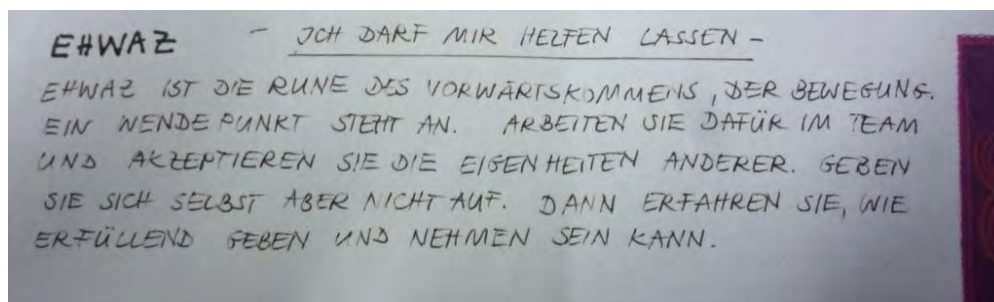 EHWAZ - ICH DARF MIR HELFEN LASSEN -
EHWAZ IST DIE RUNE DES VORWÄRTSKOMMENS, DER BEWEGUNG.
EIN WENDEPUNKT STEHT AN. ARBEITEN SIE DAFÜR IM TEAM
UND AKZEPTIEREN SIE DIE EIGENHEITEN ANDERER. GEBEN
SIE SICH SELBST ABER NICHT AUF. DANN ERFAHREN SIE, WIE
ERFÜLLEND GEBEN UND NEHMEN SEIN KANN.